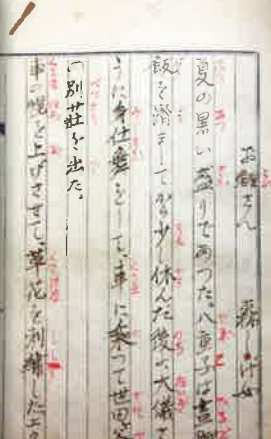 お鯉さん 森しげ女
夏の暑い盛りであつた。八重子は晝
飯を濟ましてから少し休んだ後、大儀さ
うに身仕度をして、車に乗つて世田谷
の別荘を出た。
車の幌を上げさせて、草花を刺繍した